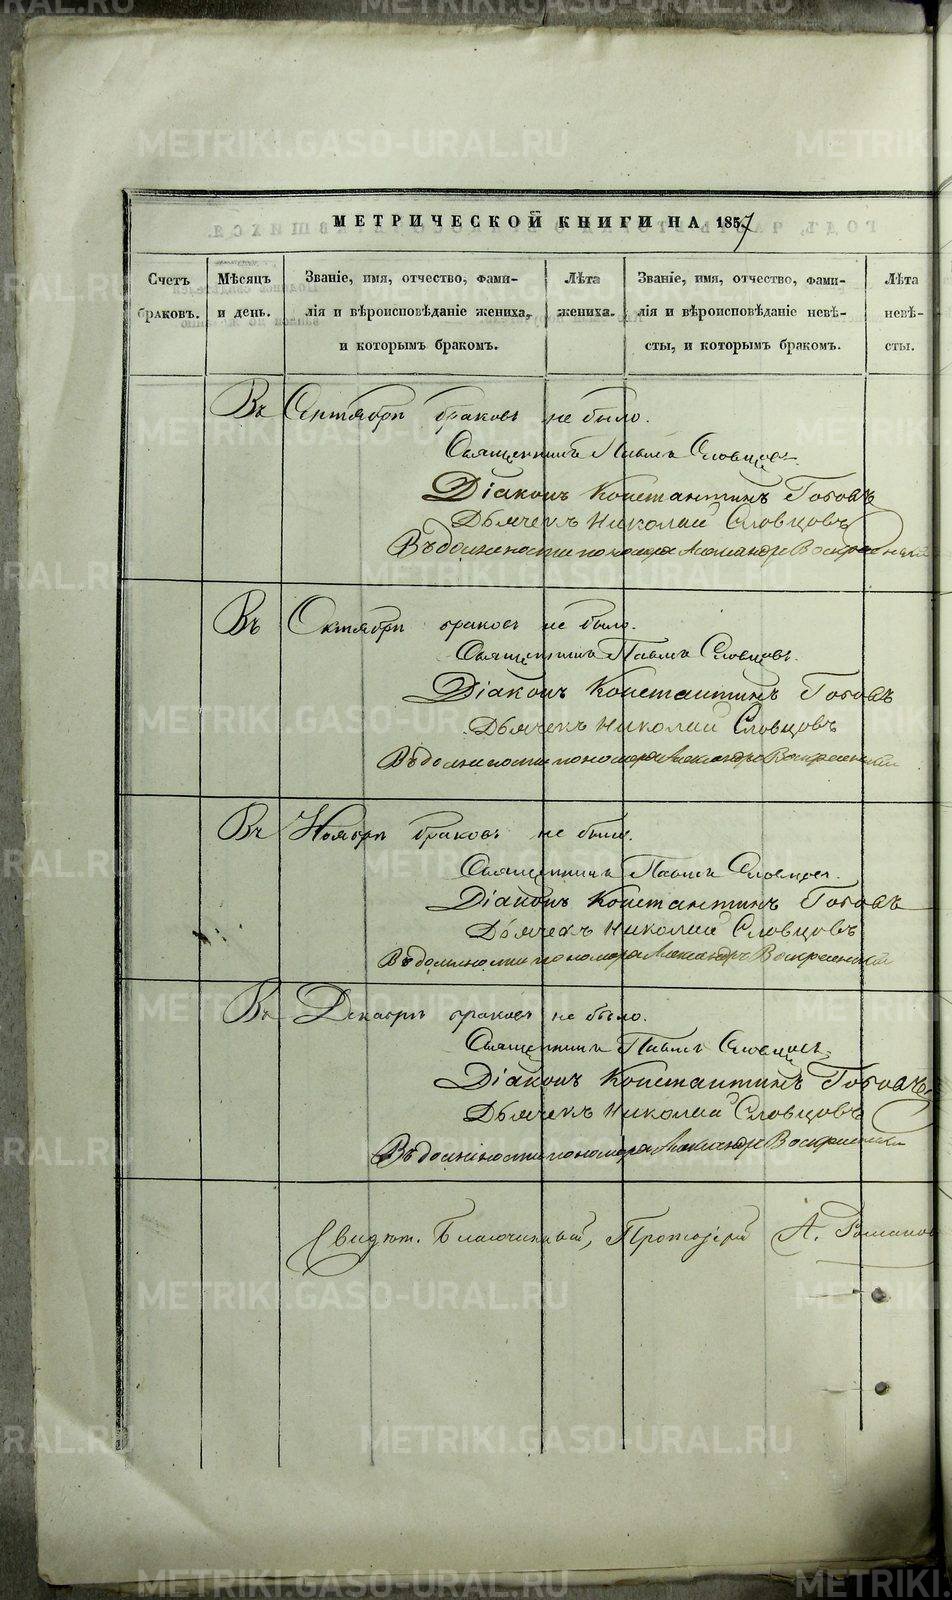 МЕТРИЧЕСКОЙ КНИГИ НА 1857
Счетъ браковъ.
Мѣсяцъ и день.
Званіе, имя, отчество, фами-
лія и вѣроисповѣданіе жениха,
и которымъ бракомъ.
Лѣта жениха.
Званіе, имя, отчество, фами-
лія и вѣроисповѣданіе невѣ-
сты, и которымъ бракомъ.
Лѣта невѣ-
сты.
Въ Сентябрѣ браковъ не было.
Священникъ Павелъ Словцовъ.
Діаконъ Константинъ Гобовъ
Дьячекъ Николай Словцовъ
Въ должности пономаря Александръ Воскресенскій
Въ Октябрѣ браковъ не было.
Священникъ Павелъ Словцовъ.
Діаконъ Константинъ Гобовъ
Дьячекъ Николай Словцовъ
Въ должности пономаря Александръ Воскресенскій
Въ Ноябрѣ браковъ не было.
Священникъ Павелъ Словцовъ.
Діаконъ Константинъ Гобовъ
Дьячекъ Николай Словцовъ
Въ должности пономаря Александръ Воскресенскій
Въ Декабрѣ браковъ не было.
Священникъ Павелъ Словцовъ.
Діаконъ Константинъ Гобовъ
Дьячекъ Николай Словцовъ
Въ должности пономаря Александръ Воскресенскій
Свидѣт. Благочинный, Протоіерей А. Романов
METRIKI.GASO-URAL.RU